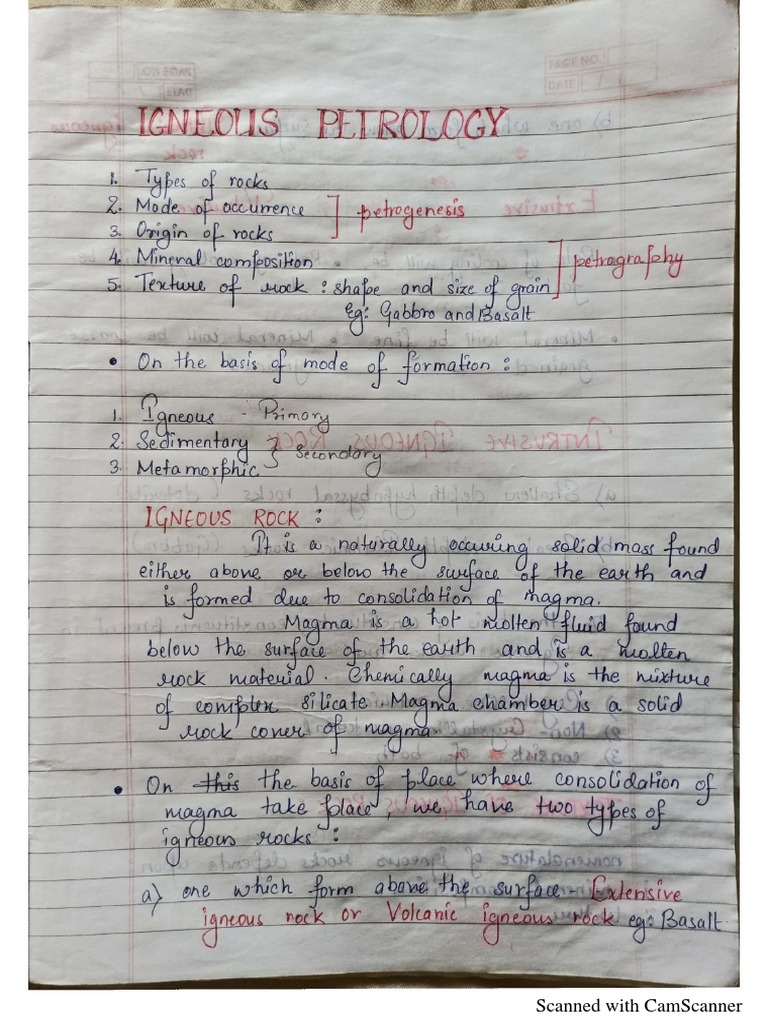 IGNEOUS PETROLOGY
1. Types of rocks
2. Mode of occurrence ] petrogenesis
3. Origin of rocks
4. Mineral composition ] petrography
5. Texture of rock : shape and size of grain
Eg: Gabbro and Basalt
• On the basis of mode of formation :
1. Igneous - Primary
2. Sedimentary } Secondary
3. Metamorphic
IGNEOUS ROCK :
It is a naturally occuring solid mass found
either above or below the surface of the earth and
is formed due to consolidation of magma.
Magma is a hot molten fluid found
below the surface of the earth and is a molten
rock material. Chemically magma is the mixture
of complex silicate. Magma chamber is a solid
rock cover of magma
• On this the basis of place where consolidation of
magma take place, we have two types of
igneous rocks :
a) one which form above the surface - Extensive
igneous rock or Volcanic igneous rock eg: Basalt.
Scanned with CamScanner